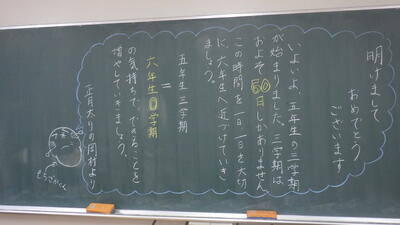 明けまして
おめでとう
ございます
いよいよ、五年生の三学期
が始まりました。三学期は
およそ50日しかありません。
この時間を一日一日を大切
に、六年生へ近づけていき
ましょう。
五年生三学期
＝
六年生0学期
の気持ちで、できることを
増やしていきましょう。
正月太りの岡村より